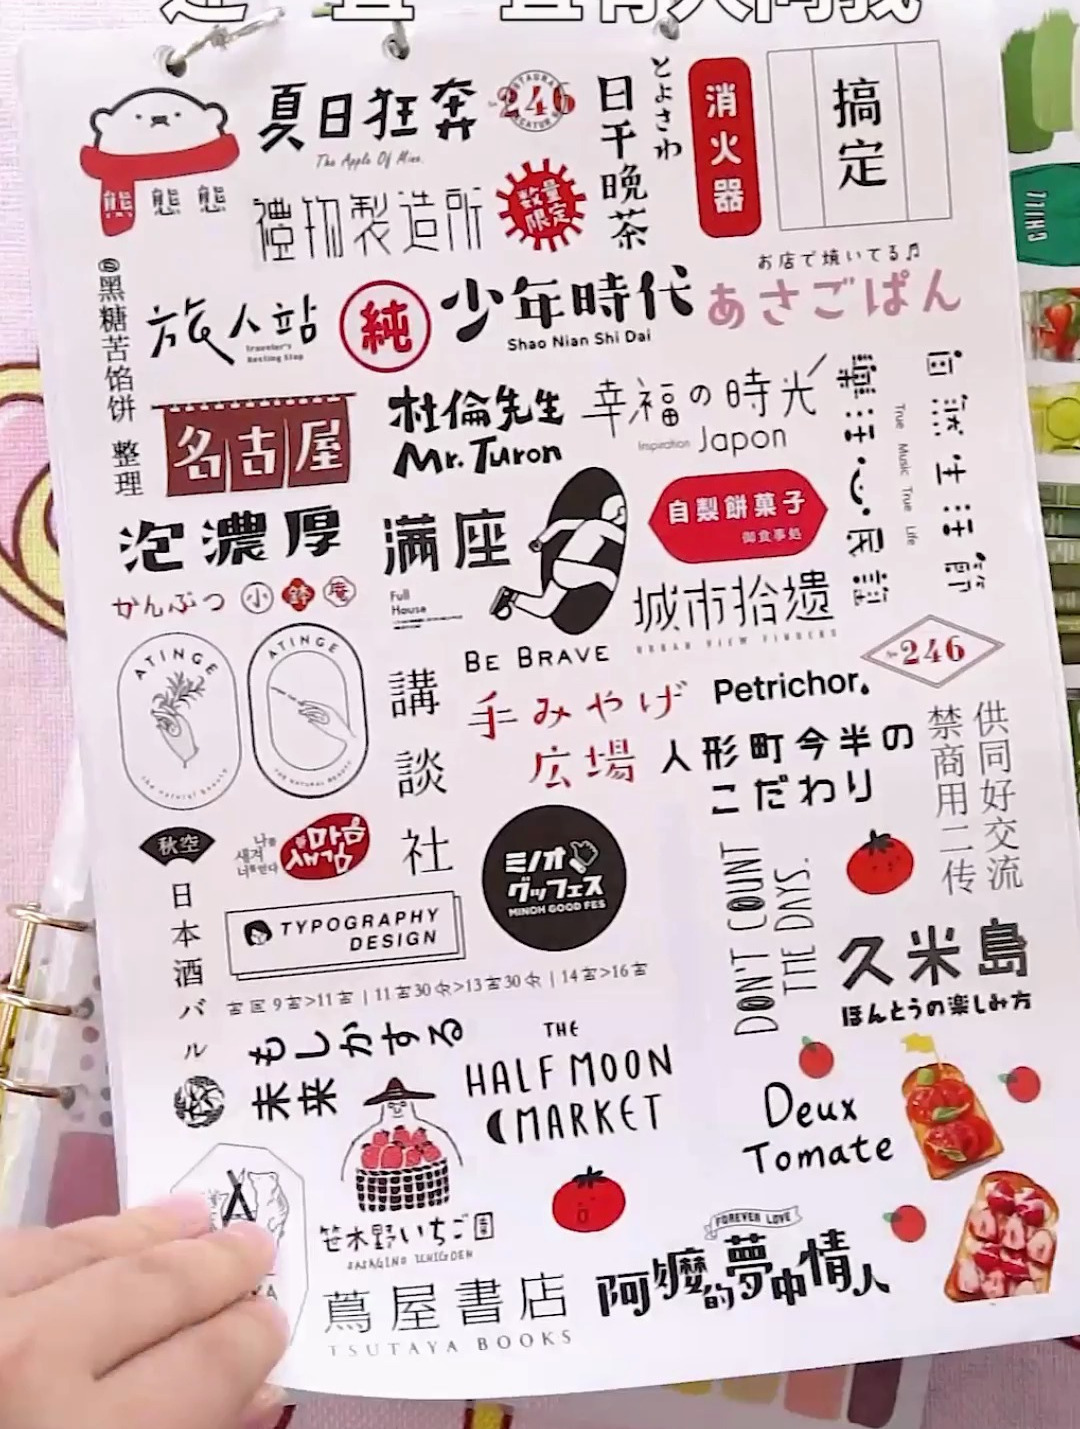 夏日狂奔
The Apple Of Mine.
246
日干晩茶
とよさわ
消火器
搞定
熊 態 態
禮物製造所
数量
限定
黑糖苦馅饼 整理
旅人站
Traveler's
Resting Stop
純
少年時代
Shao Nian Shi Dai
お店で焼いてる♬
あさごぱん
名古屋
杜倫先生
Mr. Turon
幸福の時光
Inspiration Japon
True Music True Life
泡濃厚
满座
Full
House
自製餅菓子
御食事処
かんぶつ 小鉢庵
城市拾遗
URBAN VIEW FINDERS
ATINGE
the natural beauty
ATINGE
THE NATURAL BEAUTY
講談社
BE BRAVE
手みやげ
広場
Petrichor.
No 246
人形町今半の
こだわり
供同好交流
禁商用二传
秋空
日本酒バル
새마음
TYPOGRAPHY
DESIGN
ミノオ
グッフェス
MINOH GOOD FES
DON'T COUNT
THE DAYS.
久米島
ほんとうの楽しみ方
もしかする
未来
THE
HALF MOON
MARKET
Deux
Tomate
笹木野いちご園
SASAGINO ICHIGOEN
FOREVER LOVE
阿嬤的夢中情人
蔦屋書店
TSUTAYA BOOKS
CHILL